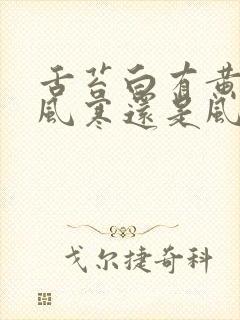 舌苔白有黄
风寒還是风
戈尔捷奇科